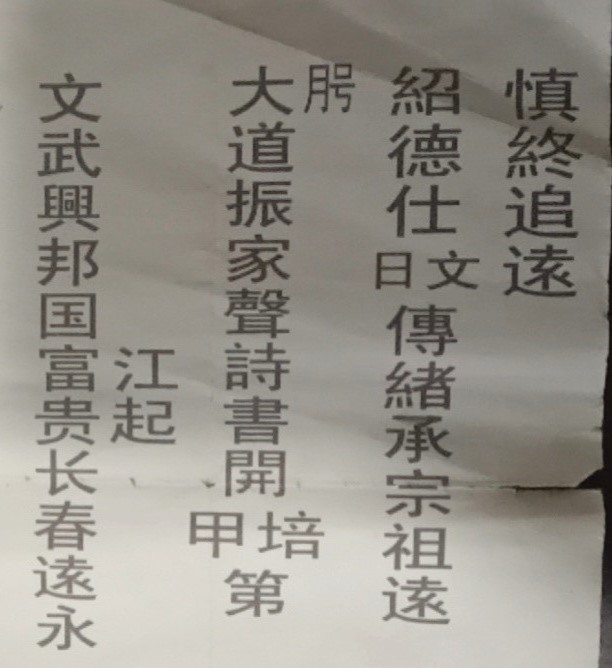 慎終追遠
紹德仕文日傳緒承宗祖遠
大道振家聲詩書開培甲第
江起
文武興邦国富贵长春遠永